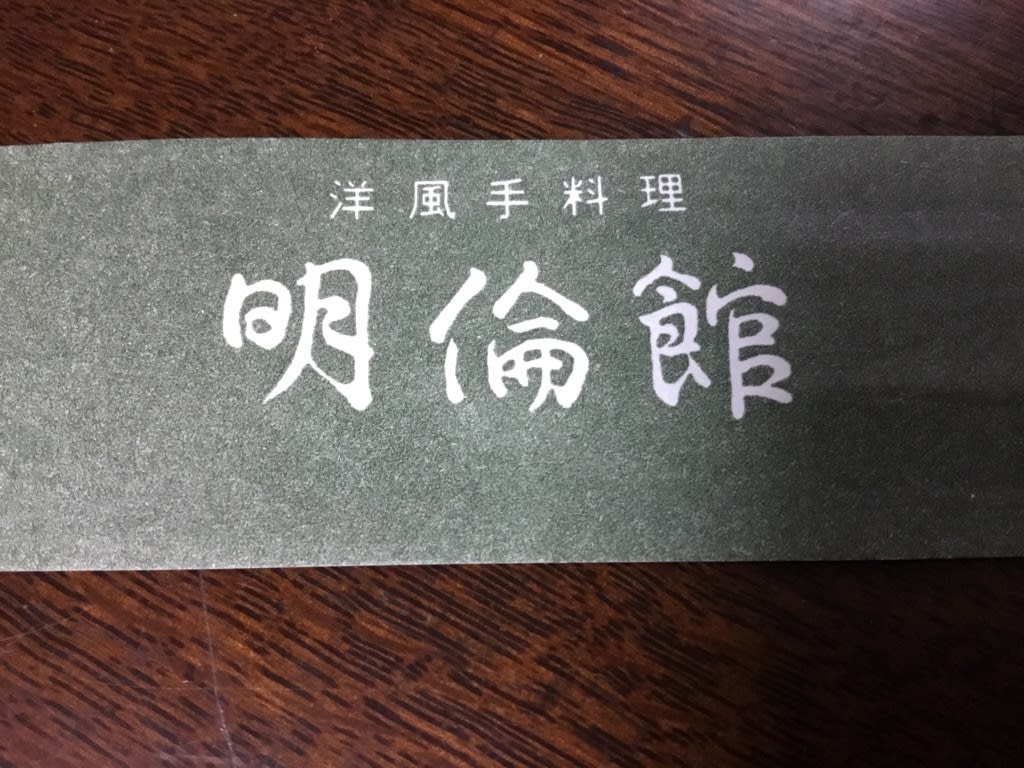 洋風手料理
明倫館